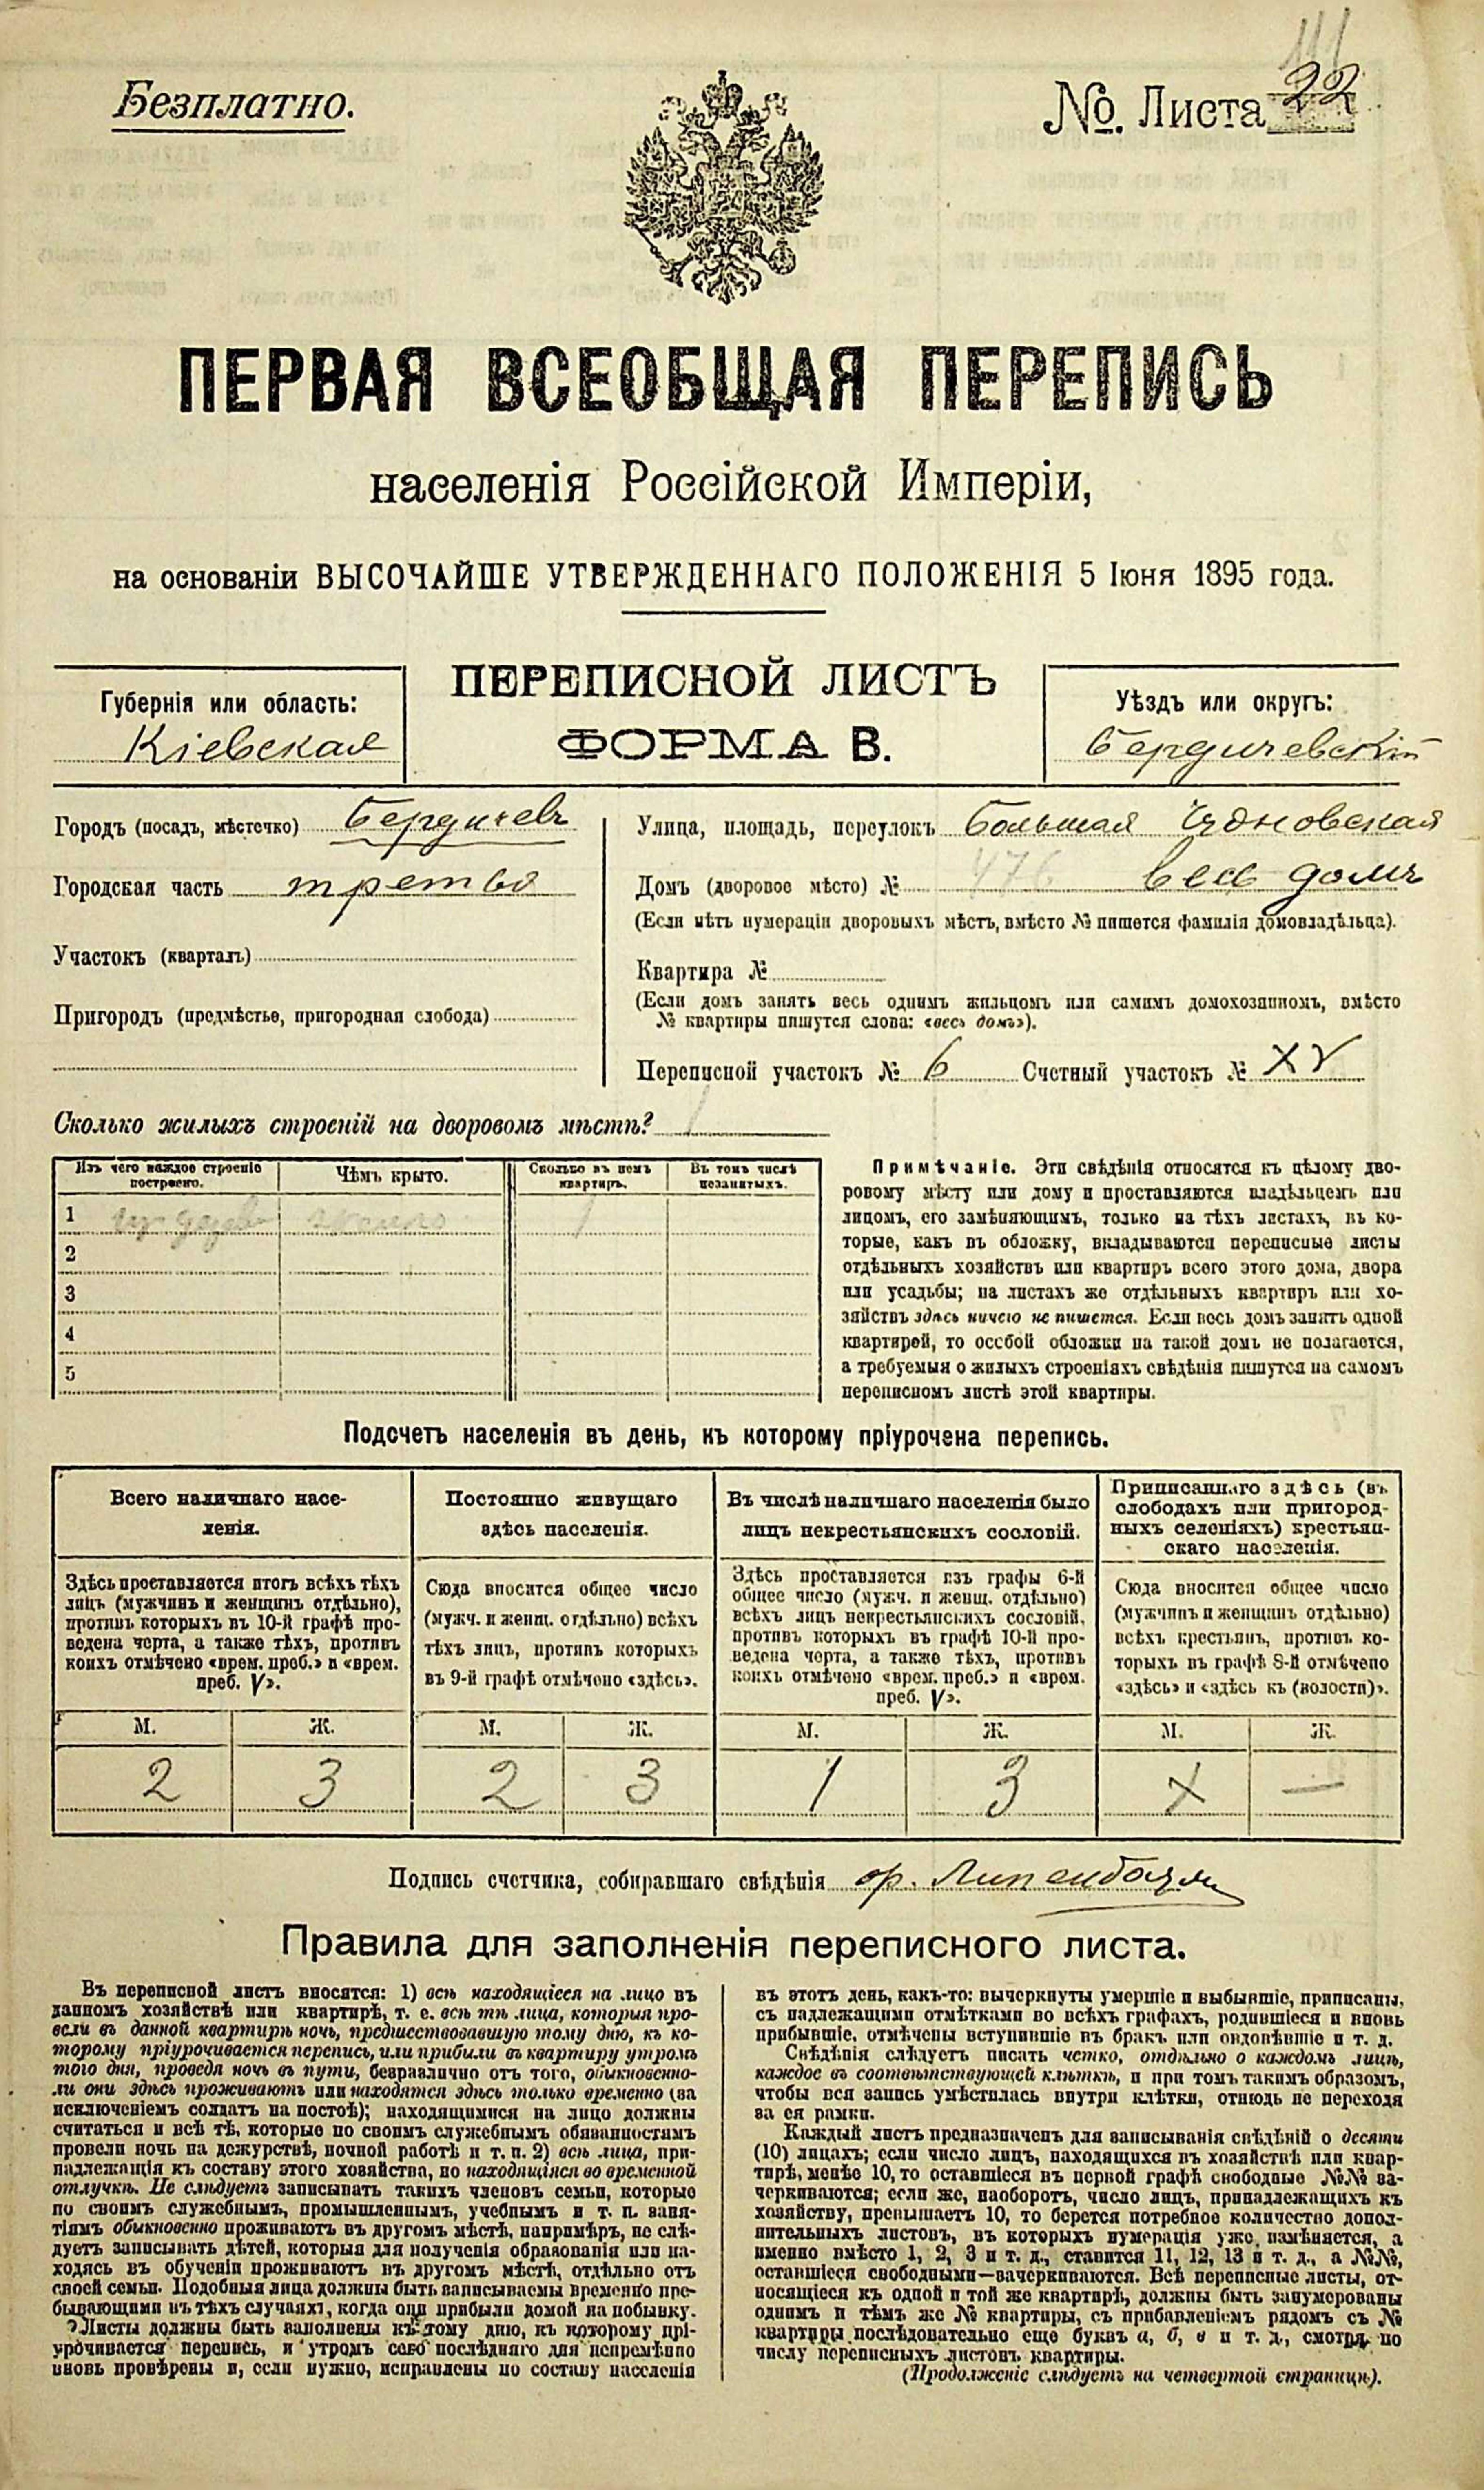 111
Безплатно.
№. Листа 22
ПЕРВАЯ ВСЕОБЩАЯ ПЕРЕПИСЬ
населенія Россійской Имперіи,
на основаніи ВЫСОЧАЙШЕ УТВЕРЖДЕННАГО ПОЛОЖЕНІЯ 5 Іюня 1895 года.
Губернія или область:
Кіевская
ПЕРЕПИСНОЙ ЛИСТЪ
ФОРМА В.
Уѣздъ или округъ:
Бердичевскій
Городъ (посадъ, мѣстечко) Бердичевъ
Городская часть третья
Участокъ (кварталъ)
Пригородъ (предмѣстье, пригородная слобода)
Улица, площадь, переулокъ Большая Чудновская
Домъ (дворовое мѣсто) № 476 весь домъ
(Если нѣтъ нумераціи дворовыхъ мѣстъ, вмѣсто № пишется фамилія домовладѣльца).
Квартира №
(Если домъ занятъ весь однимъ жильцомъ или самимъ домохозяиномъ, вмѣсто
№ квартиры пишутся слова: «весь домъ»).
Переписной участокъ № 6 Счетный участокъ № XV
Сколько жилыхъ строеній на дворовомъ мѣстѣ? 1
Изъ чего каждое строеніе
построено.
Чѣмъ крыто.
Сколько въ немъ
квартиръ.
Въ томъ числѣ
незанятыхъ.
1 1
2
3
4
5
Примѣчаніе. Эти свѣдѣнія относятся къ цѣлому дво-
ровому мѣсту или дому и проставляются владѣльцемъ или
лицомъ, его замѣняющимъ, только на тѣхъ листахъ, въ ко-
торые, какъ въ обложку, вкладываются переписные листы
отдѣльныхъ хозяйствъ или квартиръ всего этого дома, двора
или усадьбы; на листахъ же отдѣльныхъ квартиръ или хо-
зяйствъ здѣсь ничего не пишется. Если весь домъ занятъ одной
квартирой, то особой обложки на такой домъ не полагается,
а требуемыя о жилыхъ строеніяхъ свѣдѣнія пишутся на самомъ
переписномъ листѣ этой квартиры.
Подсчетъ населенія въ день, къ которому пріурочена перепись.
Всего наличнаго насе-
ленія.
Здѣсь проставляется итогъ всѣхъ тѣхъ
лицъ (мужчинъ и женщинъ отдѣльно),
противъ которыхъ въ 10-й графѣ про-
ведена черта, а также тѣхъ, противъ
коихъ отмѣчено «врем. преб.» и «врем.
преб. V».
Постоянно живущаго
здѣсь населенія.
Сюда вносится общее число
(мужч. и женщ. отдѣльно) всѣхъ
тѣхъ лицъ, противъ которыхъ
въ 9-й графѣ отмѣчено «здѣсь».
Въ числѣ наличнаго населенія было
лицъ некрестьянскихъ сословій.
Здѣсь проставляется изъ графы 6-й
общее число (мужч. и женщ. отдѣльно)
всѣхъ лицъ некрестьянскихъ сословій,
противъ которыхъ въ графѣ 10-й про-
ведена черта, а также тѣхъ, противъ
коихъ отмѣчено «врем. преб.» и «врем.
преб. V».
Приписаннаго здѣсь (въ
слободахъ или пригород-
ныхъ селеніяхъ) крестьян-
скаго населенія.
Сюда вносится общее число
(мужчинъ и женщинъ отдѣльно)
всѣхъ крестьянъ, противъ ко-
торыхъ въ графѣ 8-й отмѣчено
«здѣсь» и «здѣсь къ (волости)».
М. Ж. М. Ж. М. Ж. М. Ж.
2 3 2 3 1 3 X —
Подпись счетчика, собиравшаго свѣдѣнія
Правила для заполненія переписного листа.
Въ переписной листъ вносятся: 1) всѣ находящіеся на лицо въ
данномъ хозяйствѣ или квартирѣ, т. е. всѣ тѣ лица, которыя про-
вели въ данной квартирѣ ночь, предшествовавшую тому дню, къ ко-
торому пріурочивается перепись, или прибыли въ квартиру утромъ
того дня, проведя ночь въ пути, безразлично отъ того, обыкновенно-
ли они здѣсь проживаютъ или находятся здѣсь только временно (за
исключеніемъ солдатъ на постоѣ); находящимися на лицо должны
считаться и всѣ тѣ, которые по своимъ служебнымъ обязанностямъ
провели ночь на дежурствѣ, ночной работѣ и т. п. 2) всѣ лица, при-
надлежащія къ составу этого хозяйства, но находящіяся во временной
отлучкѣ. Не слѣдуетъ записывать такихъ членовъ семьи, которые
по своимъ служебнымъ, промышленнымъ, учебнымъ и т. п. заня-
тіямъ обыкновенно проживаютъ въ другомъ мѣстѣ, напримѣръ, не слѣ-
дуетъ записывать дѣтей, которыя для полученія образованія или на-
ходясь въ обученіи проживаютъ въ другомъ мѣстѣ, отдѣльно отъ
своей семьи. Подобныя лица должны быть записываемы временно пре-
бывающими въ тѣхъ случаяхъ, когда они прибыли домой на побывку.
Листы должны быть заполнены къ тому дню, къ которому прі-
урочивается перепись, и утромъ сего послѣдняго дня непремѣнно
вновь провѣрены и, если нужно, исправлены по составу населенія
въ этотъ день, какъ-то: вычеркнуты умершіе и выбывшіе, приписаны,
съ надлежащими отмѣтками во всѣхъ графахъ, родившіеся и вновь
прибывшіе, отмѣчены вступившіе въ бракъ или овдовѣвшіе и т. д.
Свѣдѣнія слѣдуетъ писать четко, отдѣльно о каждомъ лицѣ,
каждое въ соотвѣтствующей клѣткѣ, и при томъ такимъ образомъ,
чтобы вся запись умѣстилась внутри клѣтки, отнюдь не переходя
за ея рамки.
Каждый листъ предназначенъ для записыванія свѣдѣній о десяти
(10) лицахъ; если число лицъ, находящихся въ хозяйствѣ или квар-
тирѣ, менѣе 10, то оставшіеся въ первой графѣ свободные №№ за-
черкиваются; если же, наоборотъ, число лицъ, принадлежащихъ къ
хозяйству, превышаетъ 10, то берется потребное количество допол-
нительныхъ листовъ, въ которыхъ нумерація уже измѣняется, а
именно вмѣсто 1, 2, 3 и т. д., ставится 11, 12, 13 и т. д., а №№,
оставшіеся свободными—зачеркиваются. Всѣ переписные листы, от-
носящіеся къ одной и той же квартирѣ, должны быть занумерованы
однимъ и тѣмъ же № квартиры, съ прибавленіемъ рядомъ съ №
квартиры послѣдовательно еще буквъ а, б, в и т. д., смотря по
числу переписныхъ листовъ квартиры.
(Продолженіе слѣдуетъ на четвертой страницѣ).